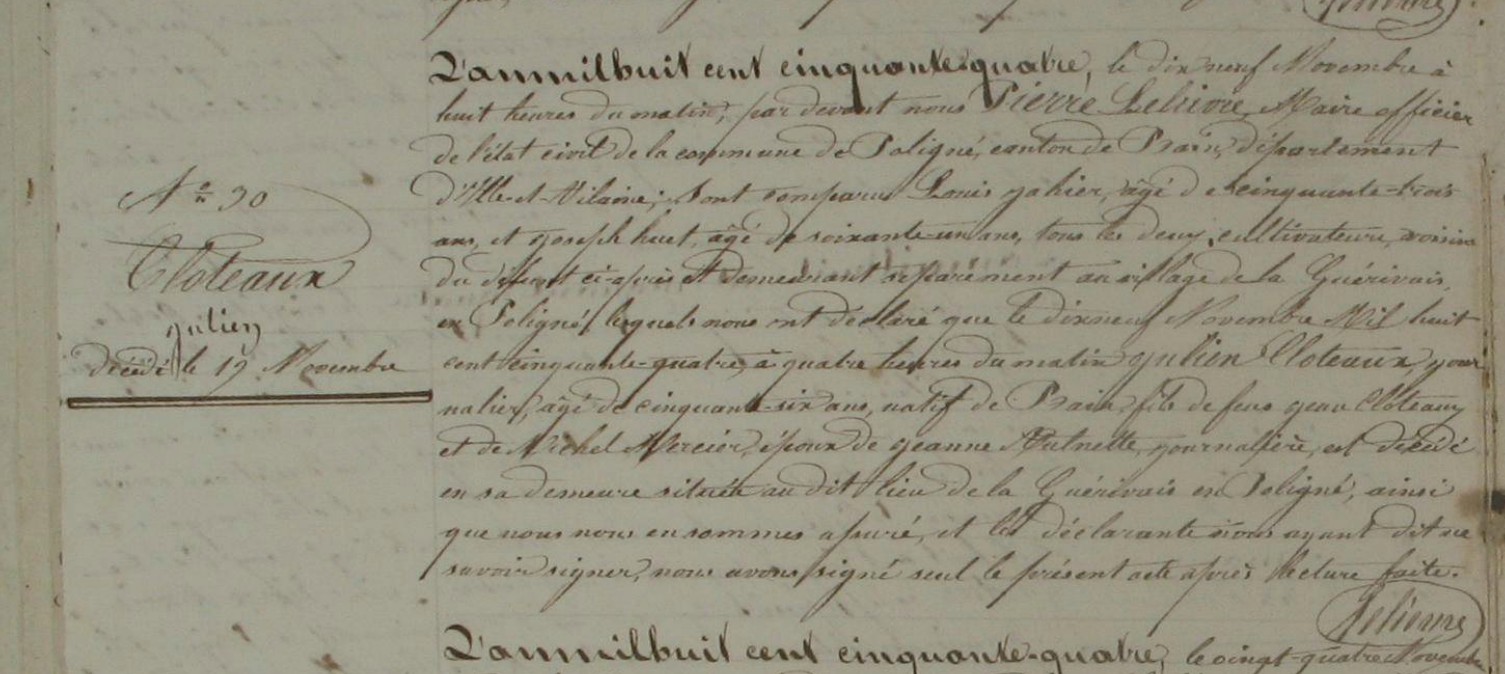 L'an mil huit cent cinquante-quatre, le dix neuf Novembre à
huit heures du matin, par devant nous Pierre Lelievre, Maire officier
de l'état civil de la commune de Poligné, canton de Bain, département
d'Ille-et-Vilaine, sont comparus Louis gahier, âgé de cinquante-trois
ans, et joseph huet, âgé de soixante-un ans, tous les deux cultivateurs, voisins
du défunt ci-après et demeurant séparément au village de la Guérivais,
en Poligné, lesquels nous ont déclaré que le dix neuf Novembre Mil huit
cent cinquante-quatre, à quatre heures du matin julien Cloteaux, jour
nalier, âgé de cinquante-six ans, natif de Bain, fils de feus jean Cloteaux
et de Michel Mercier, époux de jeanne journalière, est décédé
en sa demeure située au dit lieu de la Guérivais en Poligné, ainsi
que nous nous en sommes assuré, et les déclarants nous ayant dit ne
savoir signer, nous avons signé seul le présent acte après lecture faite.
N° 30
Cloteaux
julien
décédé le 19 Novembre
L'an mil huit cent cinquante-quatre, le vingt-quatre Novembre